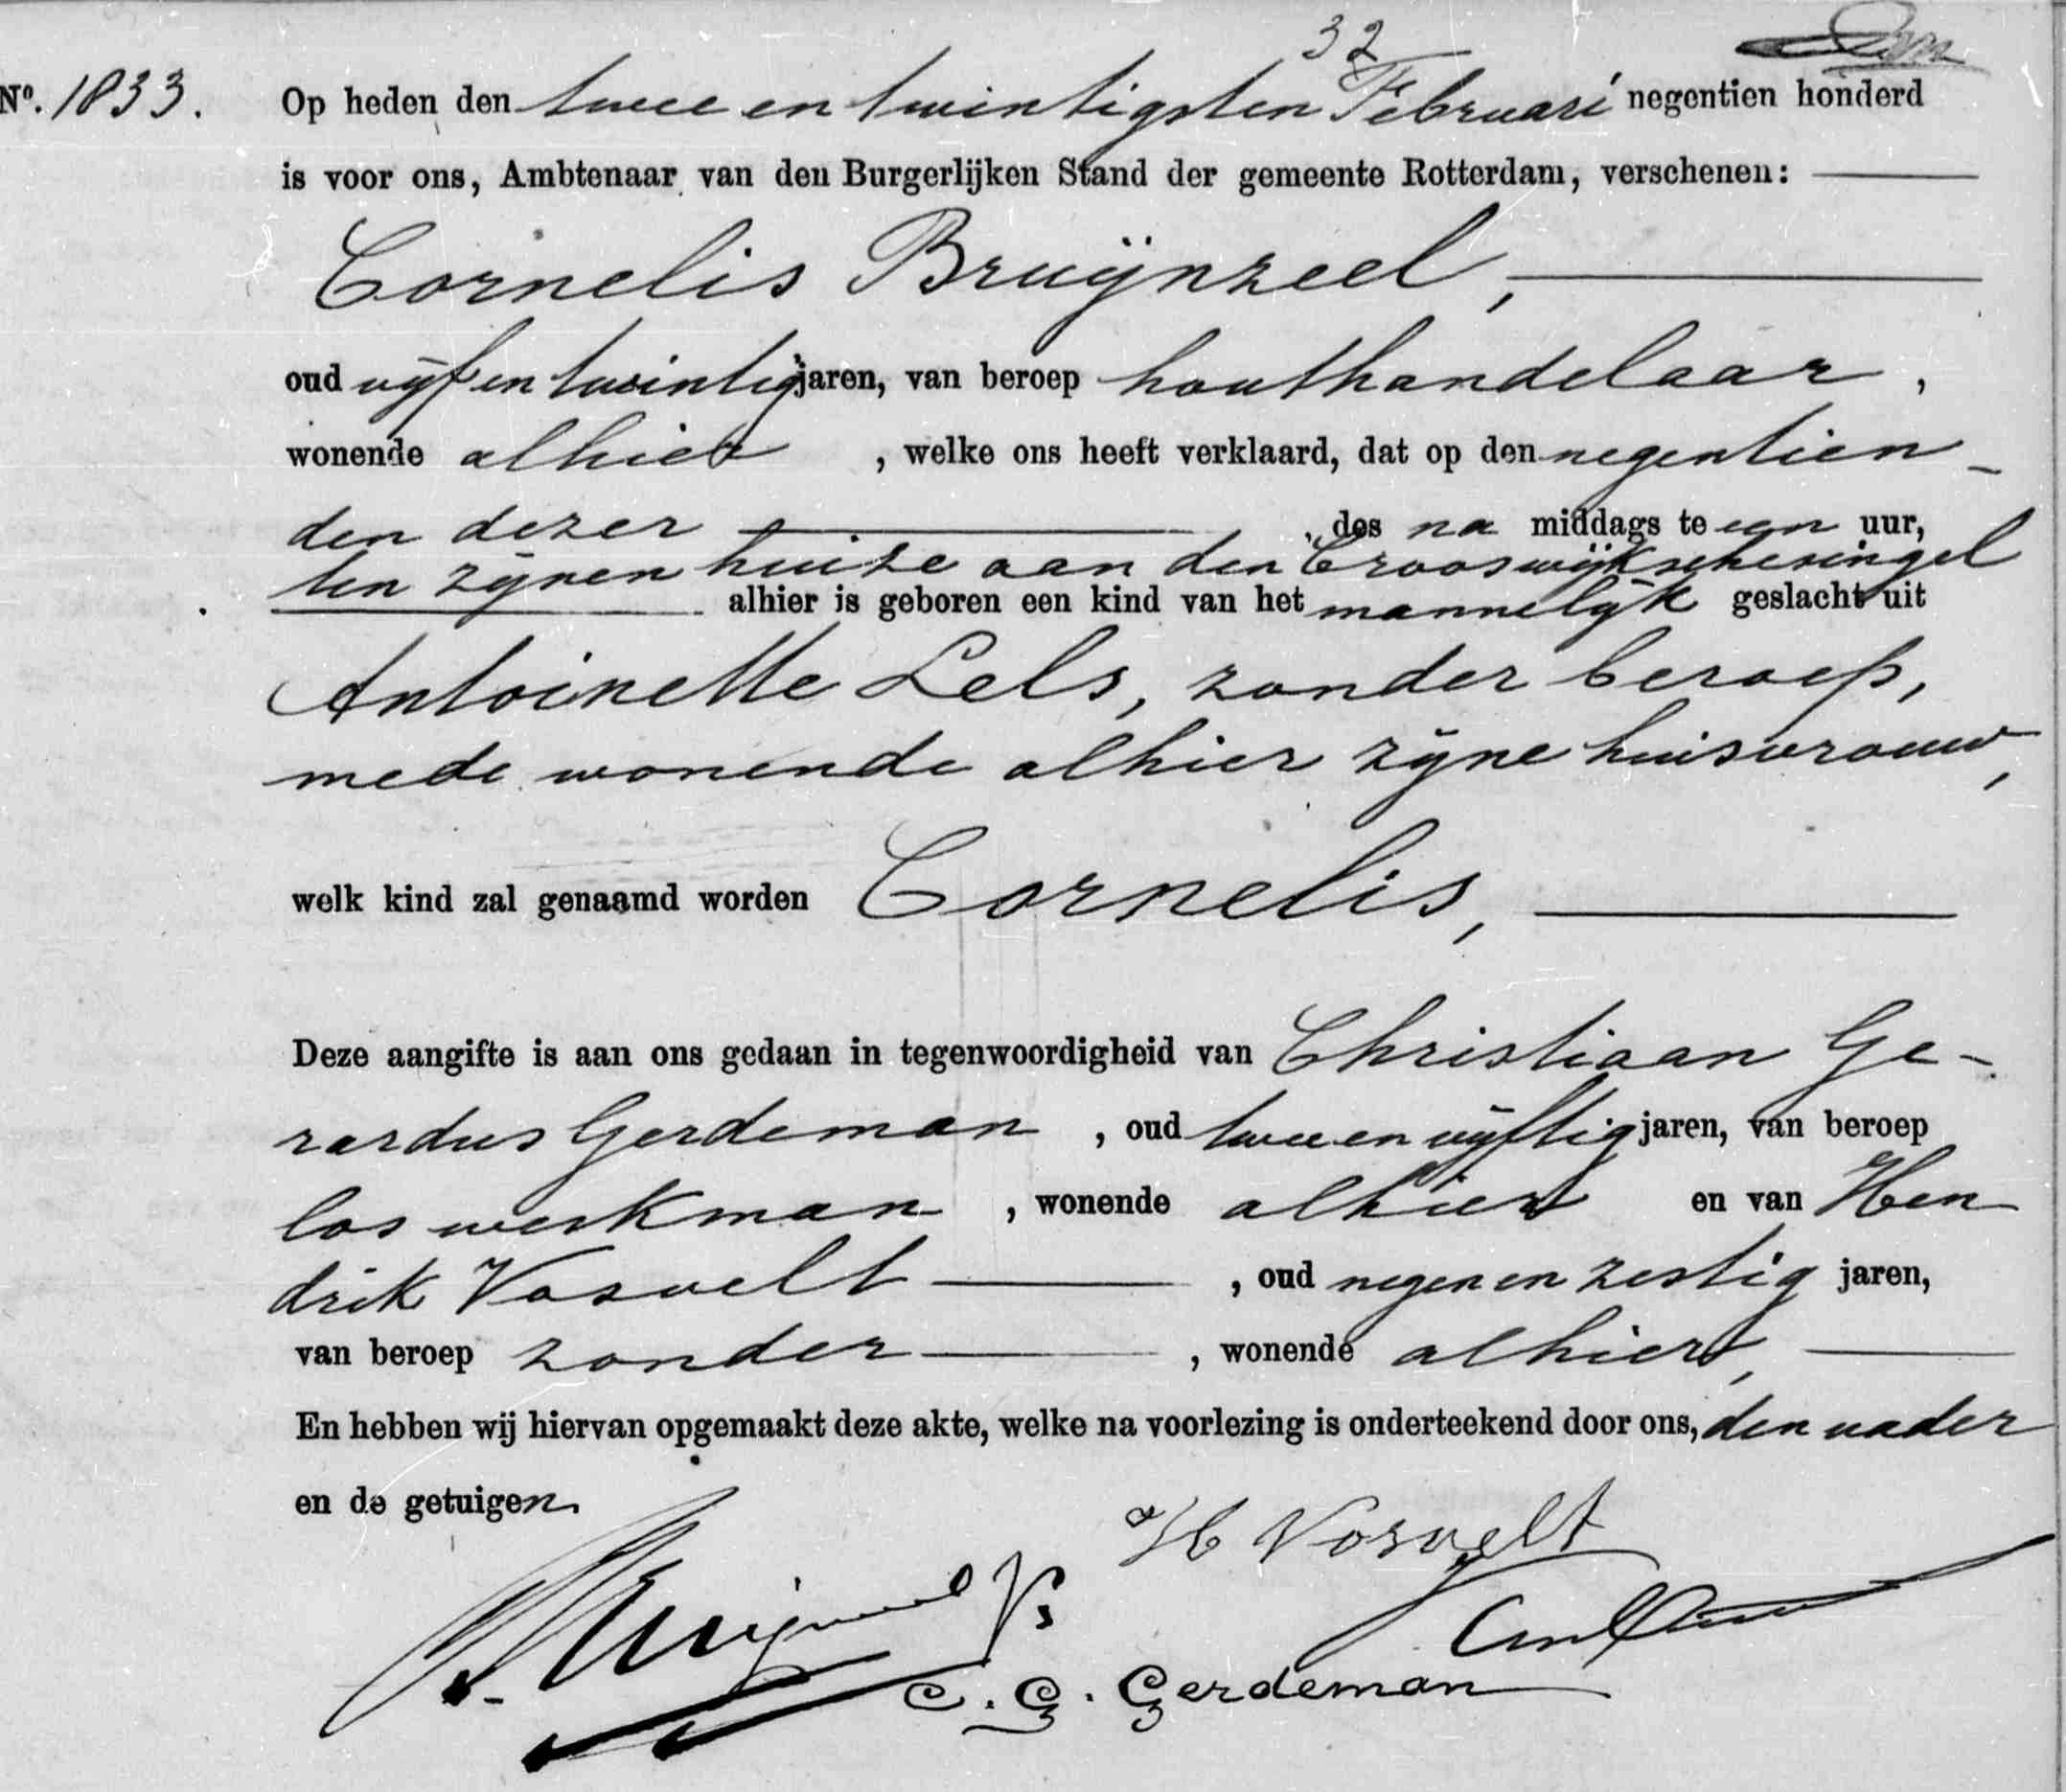 32
Nº. 1833. Op heden den twee en twintigsten Februari negentien honderd
is voor ons, Ambtenaar van den Burgerlijken Stand der gemeente Rotterdam, verschenen:
Cornelis Bruijnzeel,
oud vijf en twintig jaren, van beroep houthandelaar,
wonende alhier, welke ons heeft verklaard, dat op den negentien-
den dezer, des na middags te een uur,
ten zijnen huize aan den Crooswijkschesingel
alhier is geboren een kind van het mannelijk geslacht uit
Antoinette Lels, zonder beroep,
mede wonende alhier zijne huisvrouw,
welk kind zal genaamd worden Cornelis,
Deze aangifte is aan ons gedaan in tegenwoordigheid van Christiaan Ge-
rardus Gerdeman, oud twee en vijftig jaren, van beroep
los werkman, wonende alhier en van Hen
drik Vosvelt, oud negen en zestig jaren,
van beroep zonder, wonende alhier,
En hebben wij hiervan opgemaakt deze akte, welke na voorlezing is onderteekend door ons, den vader
en de getuigen.
H Vosvelt
C. Bruijnzeel
C. G. Gerdeman